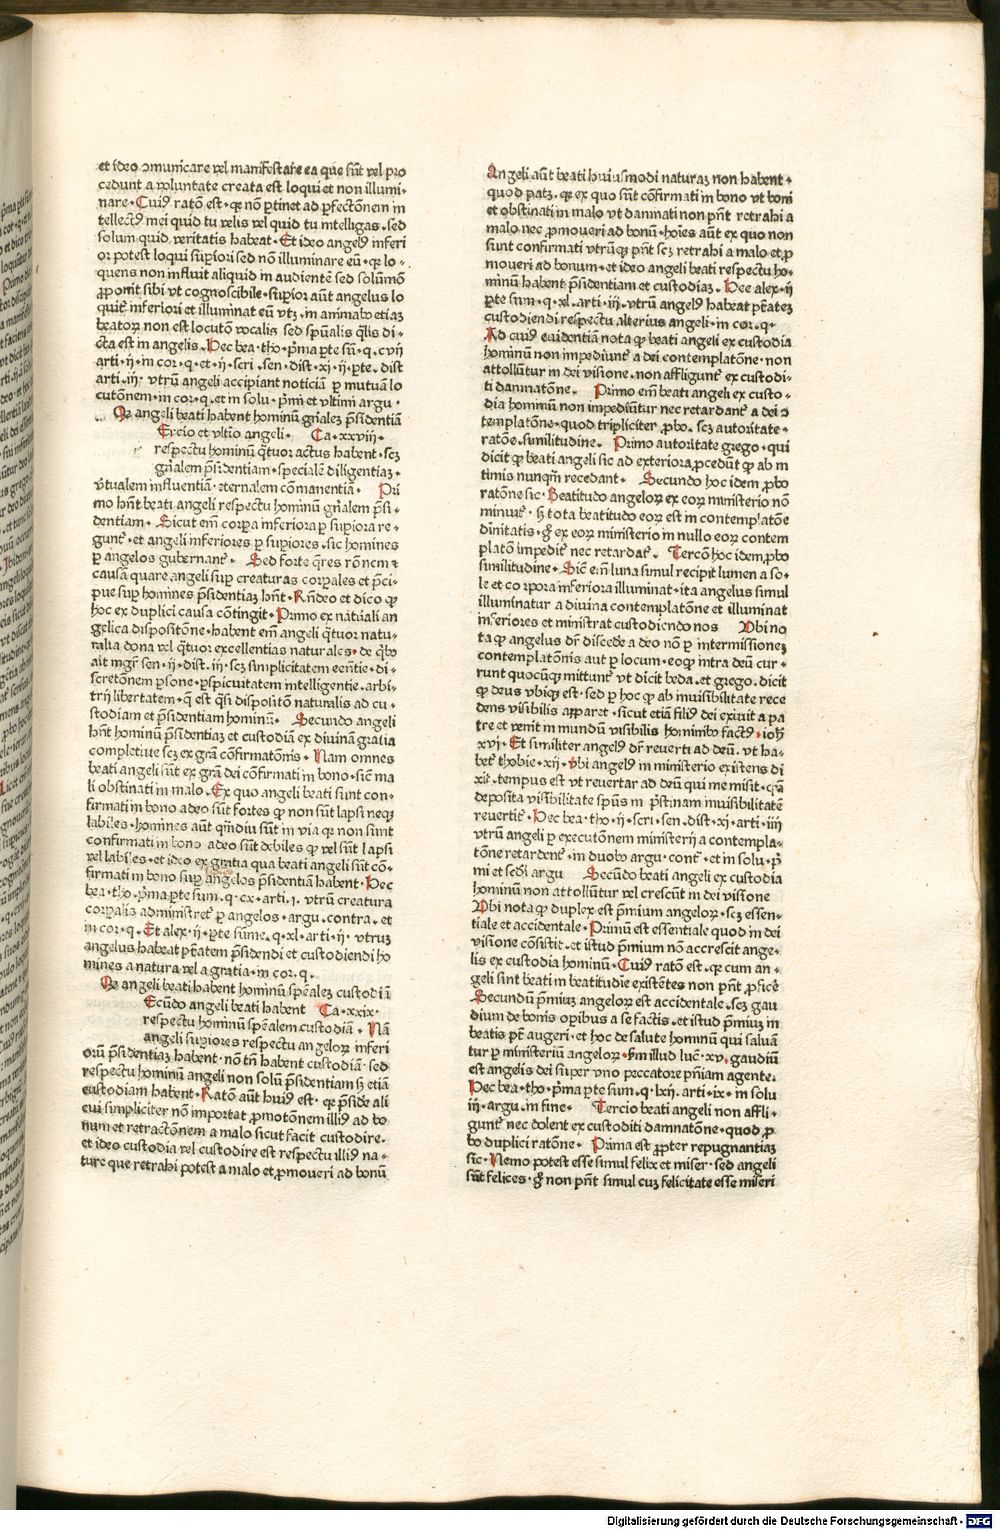 et ideo ɔmunicare vel manifestare ea que sūt vel pro
cedunt a voluntate creata est loqui et non illumi-
nare. Cuiꝰ ratō est. qꝛ nō ꝑtinet ad ꝑfectōnem in
tellectꝰ mei quid tu velis vel quid tu intelligas. sed
solum quid veritatis habeat. Et ideo angelꝰ inferi
or potest loqui suꝑiori sed nō illuminare eū. qꝛ lo-
quens non influit aliquid in audientē sed solūmō
ꝓponit sibi vt cognoscibile. suꝑior aūt angelus lo
quit inferiori et illuminat eū vtꝫ. in animabꝰ etiaꝫ
beatoꝝ non est locutō vocalis sed spūalis q̄lis di-
cta est in angelis. Hec bea. tho. p̄ma ꝑte sū. q. cvij
arti. ij. in cor. q. et. ij. scri. sen. dist. xi. ij. ꝑte. dist
arti. iij. vtrū angeli accipiant noticiā ꝑ mutuā lo
cutōnem. in cor. q. et in solu. p̄mi et vltimi argu.
Qꝛ angeli beati habent hominū gn̄ales p̄sidentiā
Ercio et vltīo angeli. Ca. xxviij.
respectu hominū q̄tuor actus habent. scꝫ
gn̄alem p̄sidentiam. specialē diligentiaꝫ.
v̄tualem influentiā. eternalem cōmanentiā. Pri
mo hn̄t beati angeli respectu hominū gn̄alem p̄si-
dentiam. Sicut em̄ corꝑa inferiora ꝑ suꝑiora re-
gunt̄. et angeli inferiores ꝑ suꝑiores. sic homines
ꝑ angelos gubernant̄. Sed forte q̄res rōnem ⁊
causā quare angeli suꝑ creaturas corꝑales et p̄ci-
pue suꝑ homines p̄sidentiaꝫ hn̄t. Rn̄deo et dico ꝙ
hoc ex duplici causa cōtingit. Primo ex naturali an
gelica dispositōne. habent em̄ angeli q̄tuor natu-
ralia dona vel q̄tuor excellentias naturales. de q̄bꝰ
ait mgr̄ sen. ij. dist. iij. scꝫ simplicitatem eēntie. di-
scretōnem ꝑsone. ꝑspicuitatem intelligentie. arbi-
trij libertatem. q̄ est q̄si dispositō naturalis ad cu-
stodiam et p̄sidentiam hominū. Secundo angeli
hn̄t hominū p̄sidentiaꝫ et custodiā ex diuina gratia
completiue scꝫ ex gr̄a cōfirmatōnis. Nam omnes
beati angeli sūt ex gr̄a dei cōfirmati in bono. sic̄ ma
li obstinati in malo. Ex quo angeli beati sunt con-
firmati in bono adeo sūt fortes ꝙ non sūt lapsi neqꝫ
labiles. homines aūt q̄mdiu sūt in via qꝛ non sunt
confirmati in bono adeo sūt debiles ꝙ vel sūt lapsi
vel labiles. et ideo ex gratia qua beati angeli sūt cō-
firmati in bono suꝑ angelos p̄sidentiā habent. Hec
bea. tho. p̄ma ꝑte sum. q. cx. arti. j. vtrū creatura
corꝑalis administret̄ ꝑ angelos. argu. contra. et
in cor. q. Et alex. ij. ꝑte sūme. q. xl. arti. ij. vtruꝫ
angelus habeat ptātem p̄sidendi et custodiendi ho
mines a natura vel a gratia. in cor. q.
Qꝛ angeli beati habent hominū spēales custodiā
Ecūdo angeli beati habent Ca. xxix.
respectu hominū spēalem custodiā. Nā
angeli suꝑiores respectu angeloꝝ inferi
orū p̄sidentiaꝫ habent. nō tn̄ habent custodiā. sed
respectu hominū angeli non solū p̄sidentiam sꝫ etiā
custodiam habent. Ratō aūt huiꝰ est. qꝛ p̄side ali
cui simpliciter nō importat ꝓmotōnem illiꝰ ad bo
num et retractōnem a malo sicut facit custodire.
et ideo custodia vel custodire est respectu illiꝰ na-
ture que retrahi potest a malo et ꝓmoueri ad bonū
Angeli aūt beati huiusmodi naturaꝫ non habent.
quod patꝫ. qꝛ ex quo sūt cōfirmati in bono vt boni
et obstinati in malo vt damnati non pn̄t retrahi a
malo nec ꝓmoueri ad bonū. hoīes aūt ex quo non
sunt confirmati vtrūqꝫ pn̄t scꝫ retrahi a malo et ꝓ
moueri ad bonum. et ideo angeli beati respectu ho-
minū habent p̄sidentiam et custodiaꝫ. Hec alex. ij
ꝑte sum. q. xl. arti. iij. vtrū angelꝰ habeat ptātes
custodiendi respectu alterius angeli. in cor. q.
Ad cuiꝰ euidentiā nota ꝙ beati angeli ex custodia
hominū non impediunt̄ a dei contemplatōne. non
attollūtur in dei visione. non affligunt̄ ex custodi-
ti damnatōne. Primo em̄ beati angeli ex custo-
dia hominū non impediūtur nec retardant̄ a dei ɔ
templatōne. quod tripliciter ꝓbo. scꝫ autoritate.
ratōe. similitudine. Primo autoritate grego. qui
dicit ꝙ beati angeli sic ad exteriora ꝓcedūt ꝙ ab in
timis nunqm̄ recedant. Secundo hoc idem ꝓbo
ratōne sic. Beatitudo angeloꝝ ex eoꝝ ministerio nō
minuit̄. sꝫ tota beatitudo eoꝝ est in contemplatōe
diuinitatis. gͦ ex eoꝝ ministerio in nullo eoꝝ contem
platō impedit̄ nec retardat̄. Tercō hoc idem ꝓbo
similitudine. Sic̄ em̄ luna simul recipit lumen a so-
le et corpora inferiora illuminat. ita angelus simul
illuminatur a diuina contemplatōne et illuminat
inferiores et ministrat custodiendo nos Vbi no
ta ꝙ angelus dr̄ discedēe a deo nō ꝑ intermissioneꝫ
contemplatōnis aut ꝑ locum. eoqꝫ intra deū cur-
runt quocūqꝫ mittunt̄ vt dicit beda. et grego. dicit
ꝙ deus vbiqꝫ est. sed ꝑ hoc ꝙ ab inuisibilitate rece
dens visibilis apparet. sicut etiā filiꝰ dei exiuit a pa
tre et venit in mundū visibilis hominibꝰ factꝰ. ioh̄
xvj. Et similiter angelꝰ dr̄ reuerti ad deū. vt ha-
bet̄ thobie. xij. vbi angelꝰ in ministerio existens di
xit. tempus est vt reuertar ad deū qui me misit. qꝛ
deposita visibilitate spūs in p̄stinam inuisibilitatē
reuertit̄. Hec bea. tho. ij. scri. sen. dist. xi. arti. iiij
vtrū angeli ꝑ executōnem ministerij a contempla-
tōne retardent̄. in duobꝰ argu. cont̄. et in solu. p̄
mi et sedi argu Secūdo beati angeli ex custodia
hominū non attollūtur vel crescūt in dei visione
Vbi nota ꝙ duplex est p̄mium angeloꝝ. scꝫ essen-
tiale et accidentale. Primū est essentiale quod in dei
visione cōsistit. et istud p̄mium nō accrescit ange-
lis ex custodia hominū. Cuiꝰ ratō est. qꝛ cum an-
geli sint beati in beatitudīe existētes non pn̄t ꝓficē
Secundū p̄miuꝫ angeloꝝ est accidentale. scꝫ gau
dium de bonis oꝑibus a se factis. et istud p̄miuꝫ in
beatis pt̄ augeri. et hoc de salute hominū qui saluā
tur ꝑ ministeriū angeloꝝ. fm̄ illud luc̄. xv. gaudiū
est angelis dei super vno peccatore pn̄iam agente.
Hec bea. tho. p̄ma ꝑte sum. q. lxij. arti. ix. in solu
iij. argu. in fine. Tercio beati angeli non affli-
gunt̄ nec dolent ex custoditi damnatōne. quod ꝓ
bo duplici ratōne. Prima est ꝓpter repugnantiaꝫ
sic. Nemo potest esse simul felix et miser. sed angeli
sūt felices. gͦ non pn̄t simul cuꝫ felicitate esse miseri
Digitalisierung gefördert durch die Deutsche Forschungsgemeinschaft - DFG